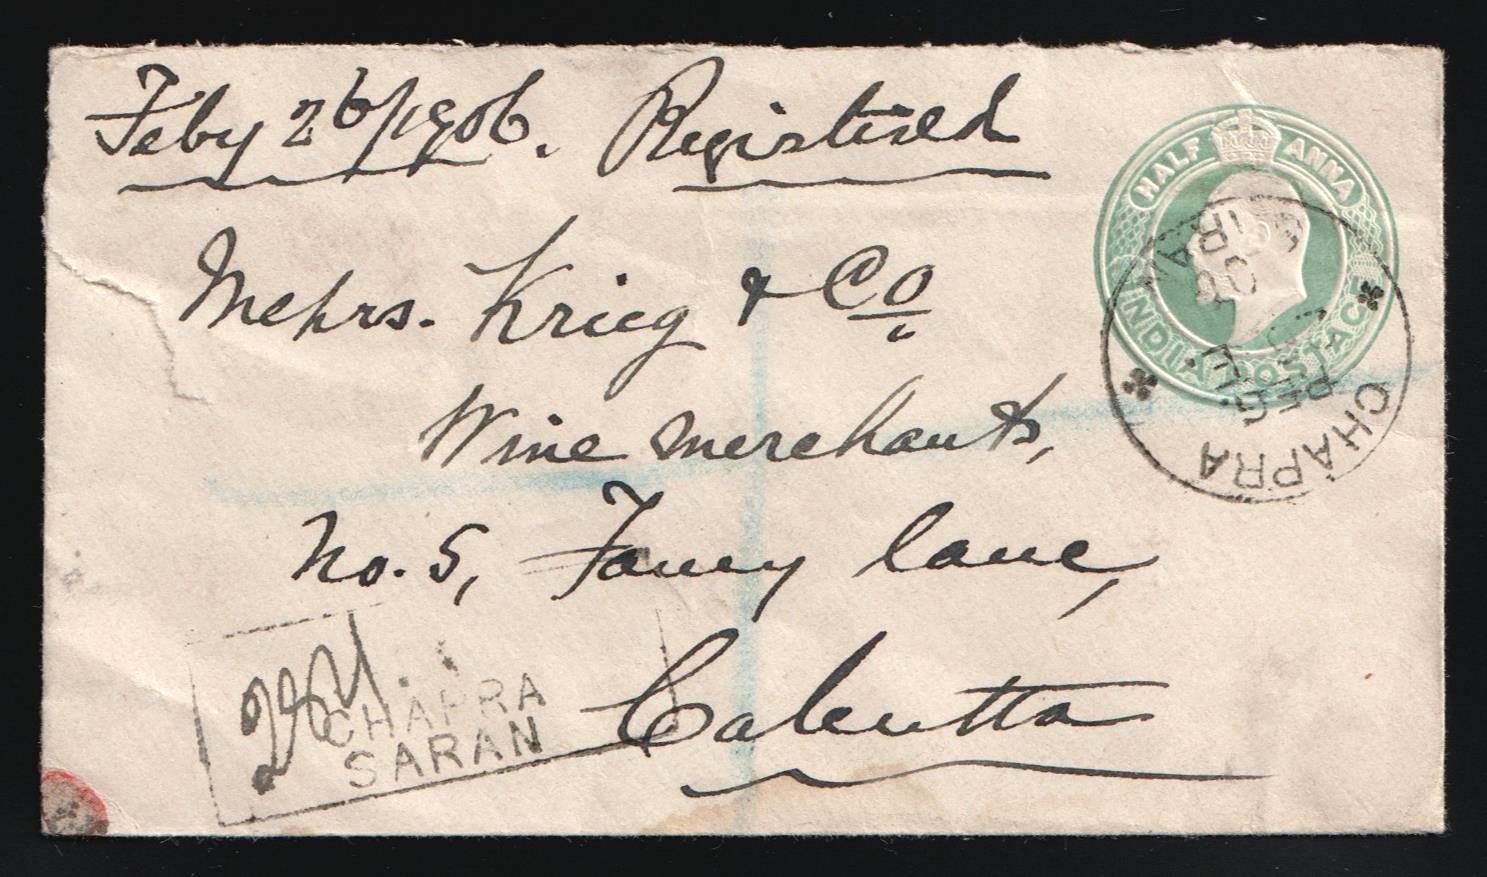 Feby 26/1906. Registered
HALF ANNA
INDIA POSTAGE
Messrs. Krieg & Co
Wine merchants,
No. 5, Fancy Lane,
Calcutta
CHAPRA
REG
CHAPRA
SARAN